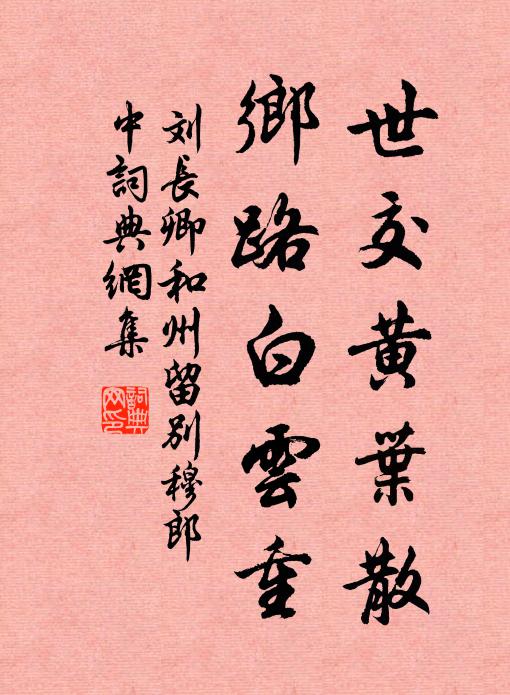 世交黄葉散
鄉路白雲重
刘長卿和州留别穆郎
中詞典網集
詞典網印